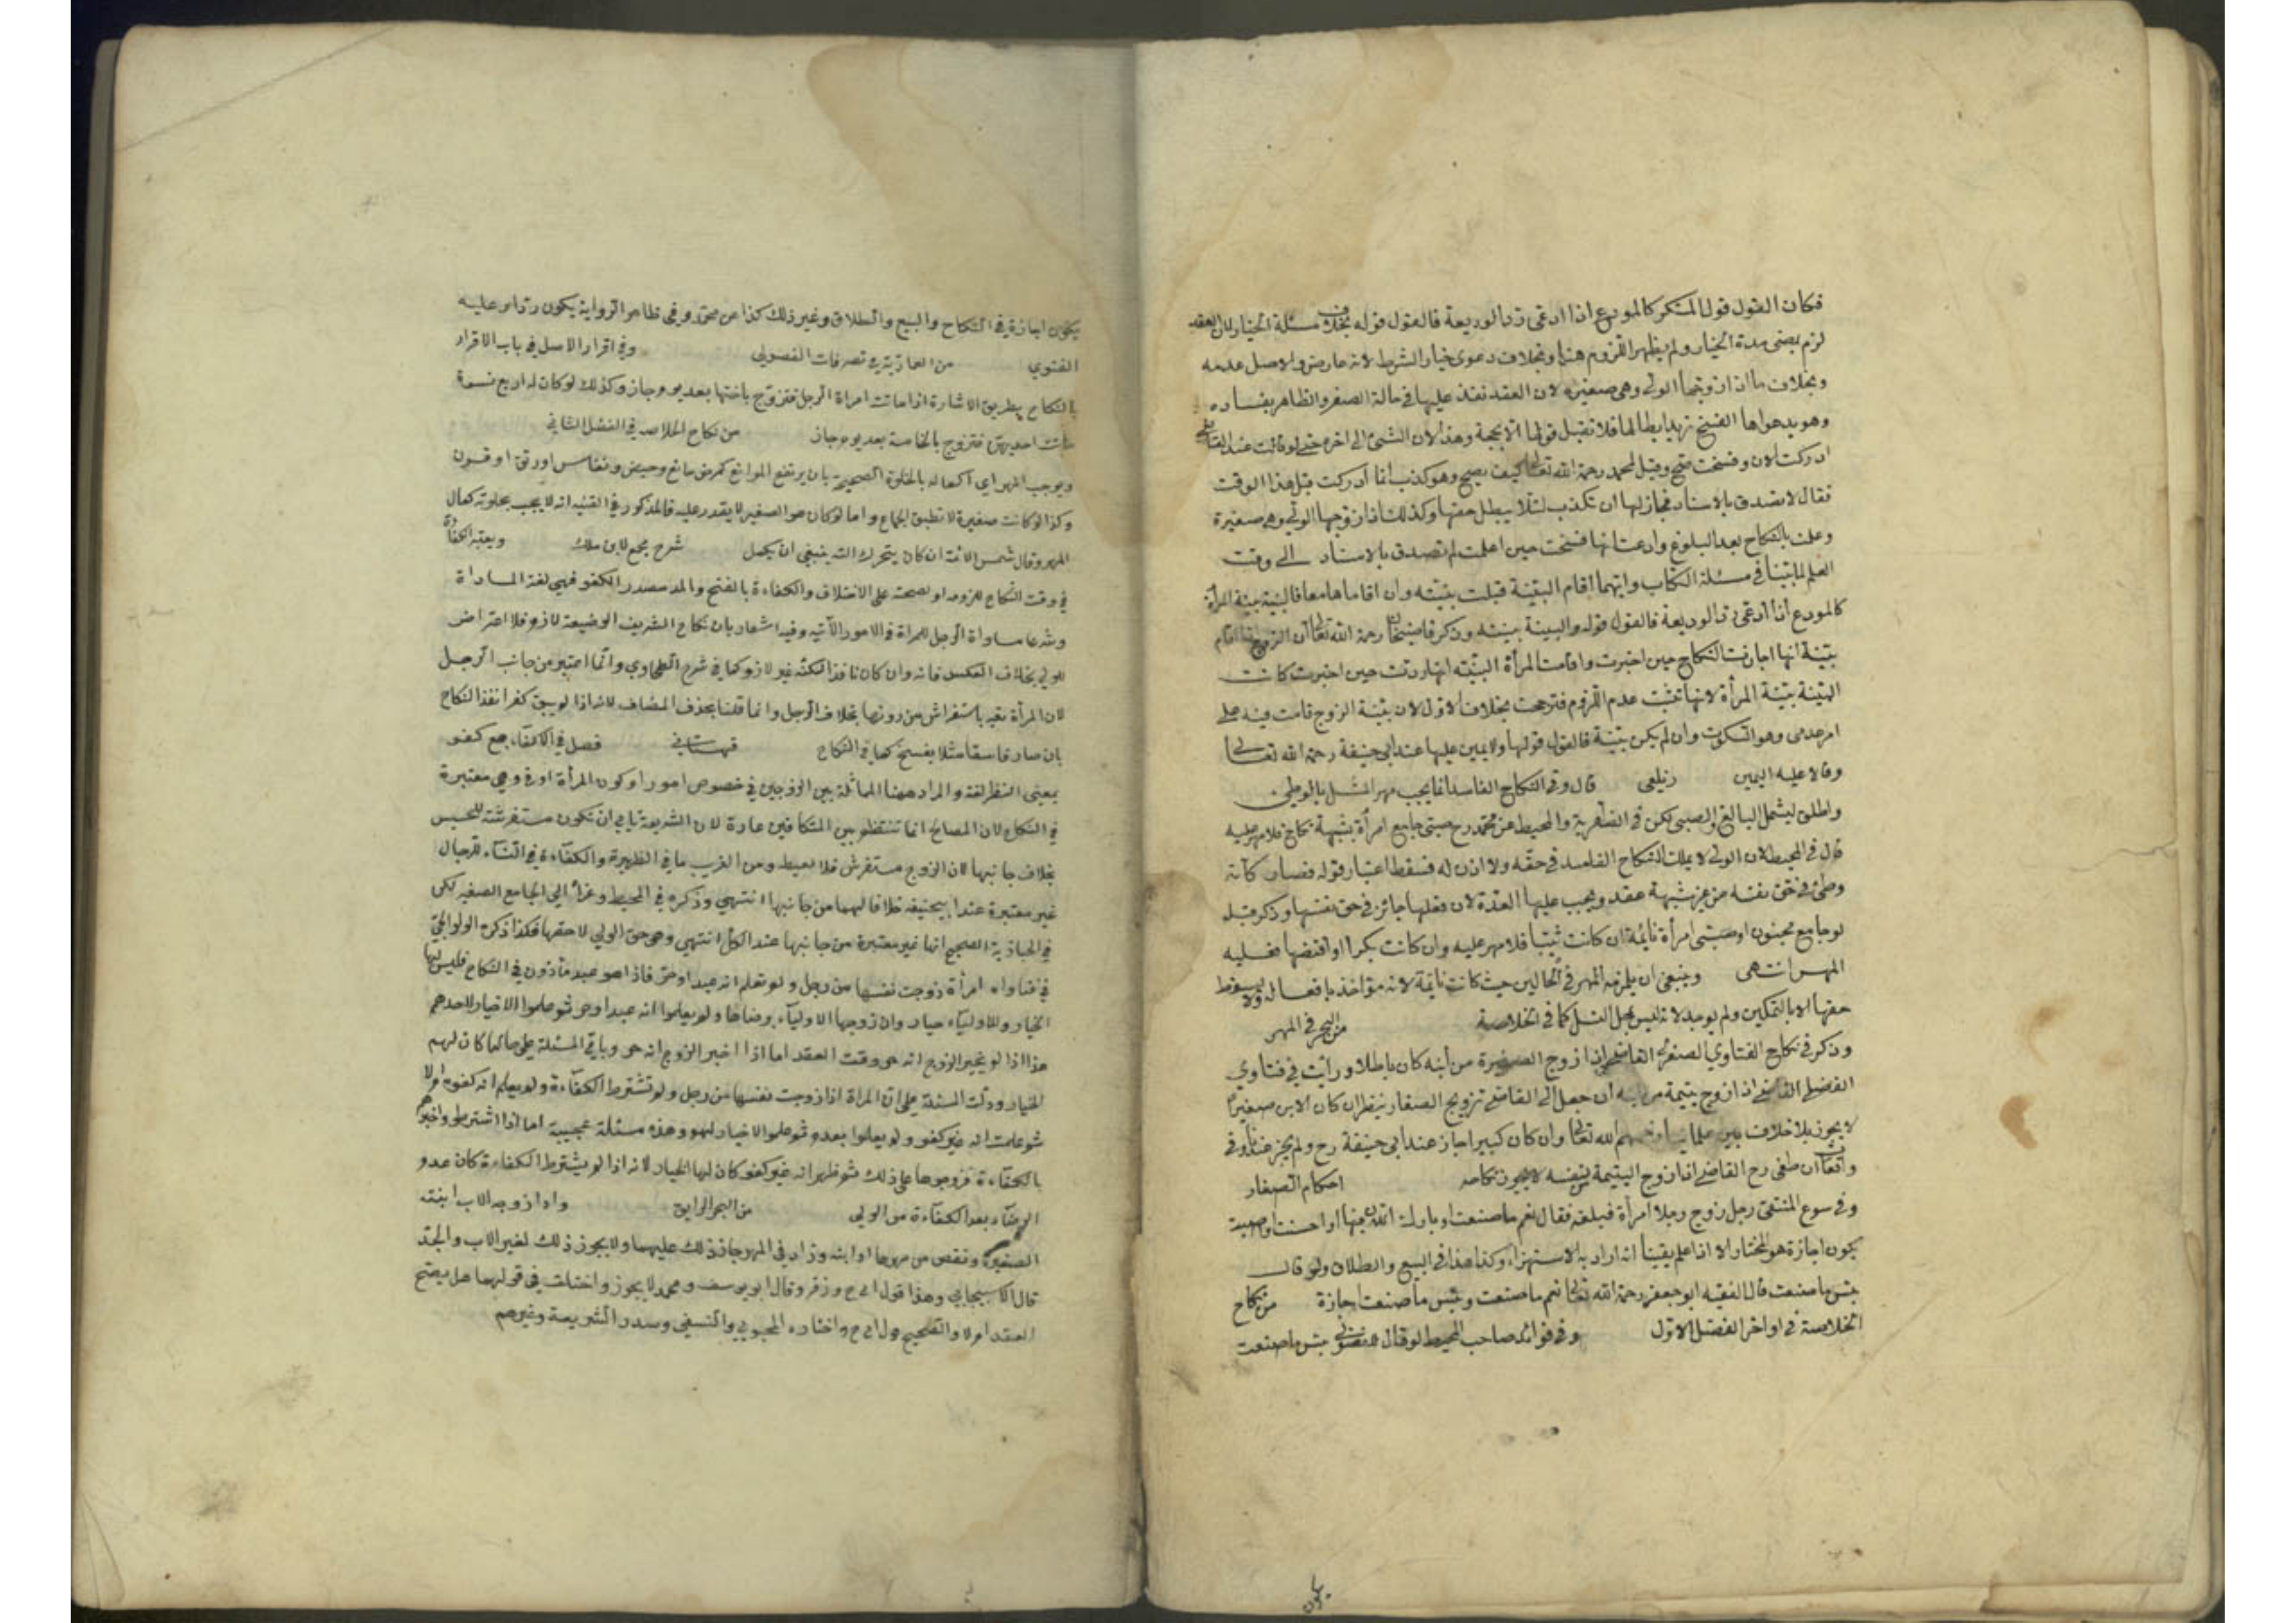 فكان القول قول المنكر كالمودع اذا ادعى رد الوديعة فالقول قوله بخلاف مسئلة الخيار لان العقد
لزم بمضى مدة الخيار ولم يظهر اللزوم هنا وبخلاف دعوى خيار الشرط لانه عارض والاصل عدمه
وبخلاف ما اذا زوجها الولى وهى صغيرة لان العقد نفذ عليها فى حالة الصغر والظاهر بفساده
وهو يدعواها الفسخ تريد ابطالها فلا تقبل قولها الا بحجة وهذا لان الشئ الى اخره حتى لو قالت عند القاضى
ادركت الان وفسخت صح وقيل لمحمد رحمة الله تعالى كيف يصح وهو كذب انما أدركت قبل هذا الوقت
فقال لا تصدق بالاسناد فجاز لها ان تكذب لئلا يبطل حقها وكذلك اذا زوجها الولى وهى صغيرة
وعلمت بالنكاح بعد البلوغ وادعت انها فسخت حين اعلمت لم تصدق بالاسناد الى وقت
العلم لما بينا فى مسئلة الكتاب وايهما اقام البينة قبلت بينته وان اقاماها معا فالبينة بينة المرأة
كالمودع اذا ادعى رد الوديعة فالقول قوله والبينة بينته وذكر قاضيخان رحمة الله تعالى ان الزوج اذا اقام
بينة انها اجازت النكاح حين اخبرت واقامت المرأة البينة انها ردت حين اخبرت كانت
البينة بينة المرأة لانها تثبت عدم اللزوم فترجحت بخلاف الاول لان بينة الزوج قامت فيه على
امر عدمى وهو السكوت وان لم يكن بينة فالقول قولها ولا يمين عليها عند ابى حنيفة رحمة الله تعالى
وقالا عليه اليمين زيلعى قال وفى النكاح الفاسد انما يجب مهر المثل بالوطئ
واطلق ليشمل البالغ والصبى لكن فى الظهرية والمحيط عن محمد رح صبى جامع امرأة بشبهة نكاح فلا مهر عليه
قال فى المحيط لان الولى لا يملك النكاح الفاسد فى حقه ولا اذن له فسقط اعتبار قوله فصار كأنه
وطئ فى حق نفسه من غير شبهة عقد ويجب عليها العدة لان فعلها جائز فى حق نفسها وذكر قبله
لو جامع مجنون او صبى امرأة نائمة ان كانت ثيبا فلا مهر عليه وان كانت بكرا او افتضها فعليه
المهر انتهى وينبغى ان يلزمه المهر فى الحالين حيث كانت نائمة لانه مؤاخذ بافعاله ولا يسقط
حقها الا بالتمكين ولم يوجد لانه ليس كما فى الخلاصة من البحر فى المهر
وذكر فى نكاح الفتاوى الصغرى القاضى اذا زوج الصغيرة من ابنه كان باطلا ورأيت فى فتاوى
الفضلى القاضى اذا زوج يتيمة من ابنه ان جعل الى القاضى تزويج الصغار ينظر ان كان الابن صغيرا
لا يجوز بلا خلاف بين علمائنا رحمهم الله تعالى وان كان كبيرا جاز عند ابى حنيفة رح ولم يجز عندنا وفى
واقعات رح القاضى اذا زوج اليتيمة بنفسه لا يجوز نكاحه احكام الصغار
وفى المنتقى رجل زوج رجلا امرأة فبلغه فقال نعم ما صنعت او بارك الله فيها او احسنت او اصبت
يكون اجازة هو المختار الا اذا علم يقينا انه اراد به الاستهزاء وكذا هذا فى البيع والطلاق ولو قال
بئس ما صنعت قال الفقيه ابو جعفر رحمة الله تعالى نعم ما صنعت وبئس ما صنعت اجازة من نكاح
الخلاصة فى اواخر الفصل الاول وفى فوائد صاحب المحيط لو قال بئس ما صنعت
يكون
يكون اجازة فى النكاح والبيع والطلاق وغير ذلك كذا عن محمد وفى ظاهر الرواية يكون ردا وعليه
الفتوي من العمادية فى تصرفات الفضولى وفى اقرار الاصل فى باب الاقرار
بالنكاح بطريق الاشارة اذا ماتت امراة الرجل فتزوج باختها بعد يوم جاز وكذلك لو كان له اربع نسوة
ماتت احديهن فتزوج بالخامسة بعد يوم جاز من نكاح الخلاصه فى الفصل الثانى
ويوجب المهر اي اكماله بالخلوة الصحيحة بان يرتفع الموانع كمرض مانع وحيض ونفاس او رتق او قرن
وكذا لو كانت صغيرة لا تطيق الجماع واما لو كان هو الصغير لا يقدر عليه فالمذكور فى القنيه انه لا يجب بخلوته كمال
المهر وقال شمس الائمة ان كان يتحرك الته ينبغى ان يكمل شرح مجمع لابن ملك ويعتبر الكفاءة
فى وقت النكاح للزومه او لصحته على الاختلاف والكفاءة بالفتح والمد مصدر الكفو فهي لغة المساواة
وشرعا مساواة الرجل للمراة فى الامور الآتيه وفيه اشعار بان نكاح الشريف الوضيعة لازم فلا اعتراض
للولي بخلاف العكس فانه وان كان نافذا لكنه غير لازم كما فى شرح الطحاوي وانما اعتبر من جانب الرجل
لان المرأة تعير باستفراش من دونها بخلاف الرجل وانما قلنا بحذف المضاف لانه اذا لم يبق كفوا نفذ النكاح
بان صار فاسقا مثلا يفسخ كما فى النكاح قهستانى فصل فى الاكفاء جمع كفو
بمعنى النظير لغة والمراد ههنا المماثلة بين الزوجين فى خصوص امور او كون المرأة ادنى وهي معتبرة
فى النكاح لان المصالح انما تنتظم بين المتكافئين عادة لان الشريفة تابى ان تكون مستفرشة للخسيس
بخلاف جانبها لان الزوج مستفرش فلا يغيظ ومن الغريب ما فى الظهيرة والكفاءة فى النساء للرجال
غير معتبرة عند ابيحنيفه خلافا لهما من جانبها انتهي وذكره فى المحيط وعزاه الي الجامع الصغير لكن
فى الخبازية الصحيح انها غير معتبرة من جانبها عند الكل انتهي وهى حق الولي لا حقها فكذا ذكره الولوالجي
فى فتاواه امرأة زوجت نفسها من رجل ولم تعلم انه عبد او حر فاذا هو عبد مأذون فى النكاح فليس لها
الخيار وللاولياء خيار وان زوجها الاولياء برضاها ولم يعلموا انه عبد او حر ثم علموا لا خيار لاحدهم
هذا اذا لم يخبر الزوج انه حر وقت العقد اما اذا اخبر الزوج انه حر وباقى المسئلة على حالها كان لهم
الخيار ودلت المسئلة على ان المراة اذا زوجت نفسها من رجل ولم تشترط الكفاءة ولم يعلم انه كفو ام لا
ثم علمت انه غير كفو ولم يعلموا بعدم ثم علموا لا خيار لهم وهذه مسئلة عجيبة اما اذا اشترطوا واخبرهم
بالكفاءة فزوجوها على ذلك ثم ظهر انه غير كفو كان لها الخيار لانه اذا لم يشترط الكفاءة كان عدم
الرضاء بعد الكفاءة من الولى من البحر الرايق واذا زوج الاب ابنته
الصغيرة ونقص من مهرها او ابنه وزاد فى المهر جاز ذلك عليهما ولا يجوز ذلك لغير الاب والجد
قال الاسبيجابي وهذا قول ابى ح وزفر وقال ابو يوسف ومحمد لا يجوز واختلف فى قولهما هل يصح
العقد ام لا والصحيح قول ابى ح واختاره المحبوبي والنسفي وصدر الشريعة وغيرهم